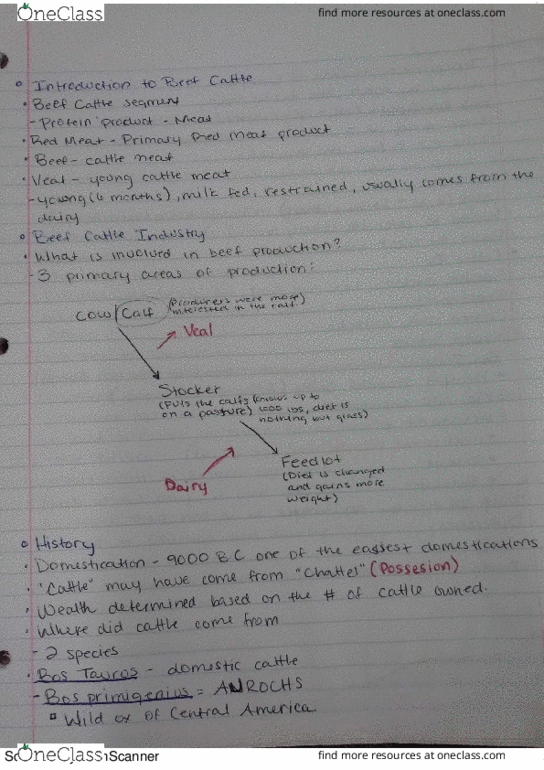 OneClass
find more resources at oneclass.com
Introduction to Beef Cattle
• Beef Cattle segment
- Protein product - Meat
• Red Meat - Primary Red meat product
• Beef - cattle meat
• Veal - young cattle meat
- young (6 months), milk fed, restrained, usually comes from the
dairy
Beef Cattle Industry
• What is involved in beef production?
- 3 primary areas of production:
Cow/Calf (Producers were more
interested in the calf)
Veal
Stocker
(Puts the calfs on a pasture)
(Grows up to 1000 lbs, diet is
nothing but grass)
Feedlot
(Diet is changed
and gains more
weight)
Dairy
History
• Domestication - 9000 BC one of the easiest domestications
• "Cattle" may have come from "Chattel" (Possesion)
• Wealth determined based on the # of cattle owned.
• Where did cattle come from
- 2 species
• Bos Tauros - domestic cattle
- Bos primigenius = AUROCHS
Wild ox of Central America
OneClass
Scanner
find more resources at oneclass.com